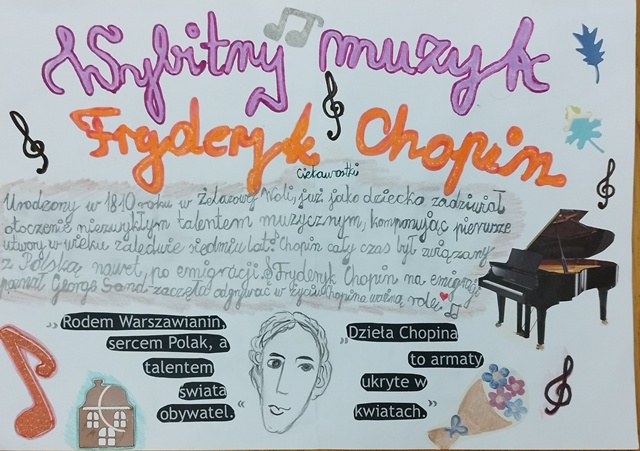 Wybitny muzyk
Fryderyk Chopin
Ciekawostki
Urodzony w 1810 roku w Żelazowej Woli, już jako dziecko zadziwiał
otoczenie niezwykłym talentem muzycznym, komponując pierwsze
utwory w wieku zaledwie siedmiu lat. Chopin cały czas był związany
z Polską nawet po emigracji. Fryderyk Chopin na emigracji
poznał George Sand zaczęła odgrywać w życiu Chopina ważną rolę.
„Rodem Warszawianin,
sercem Polak, a
talentem
świata
obywatel.”
„Dzieła Chopina
to armaty
ukryte w
kwiatach.”